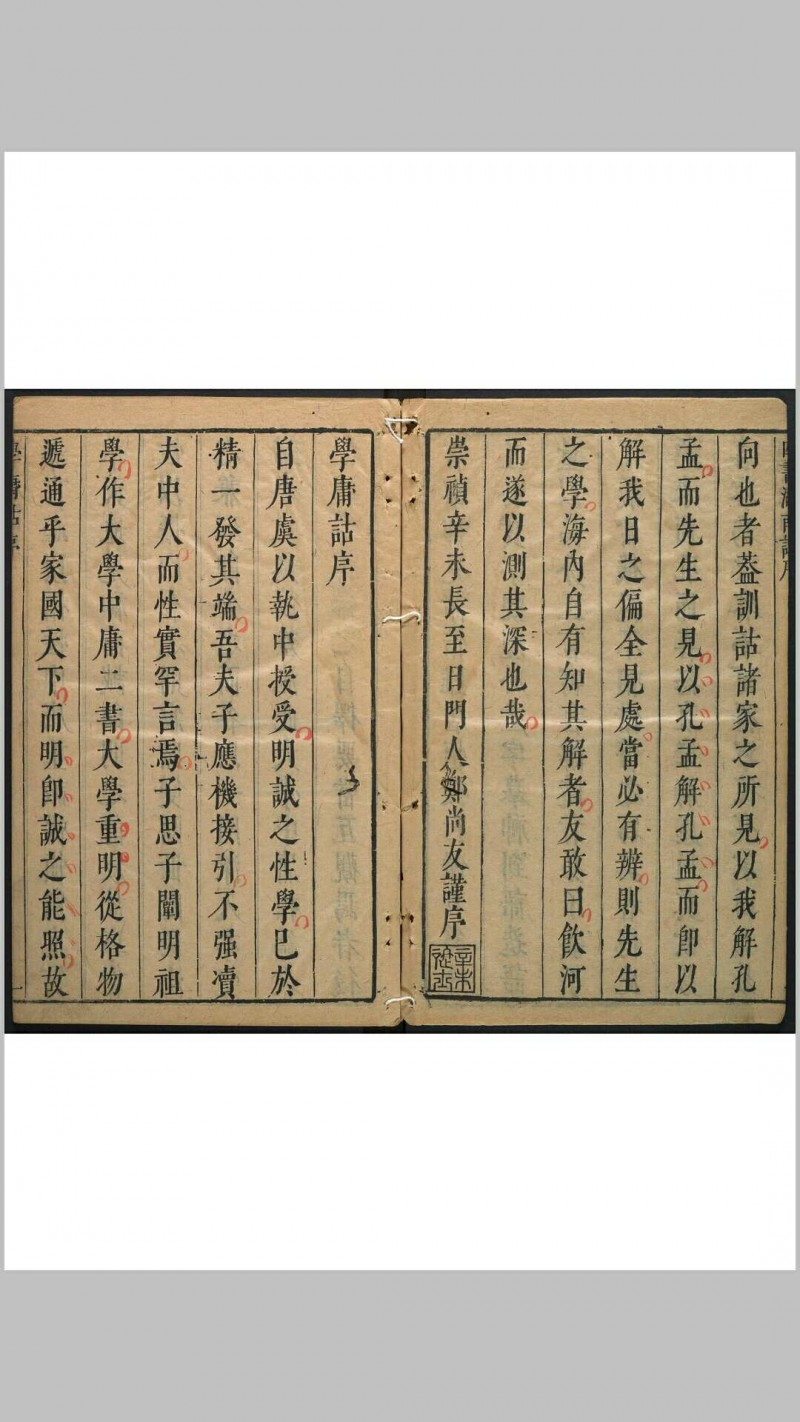 向也者蓋訓詁諸家之所見以我解孔
孟而先生之見以孔孟解孔孟而卽以
解我日之偏全見處當必有辨則先生
之學海內自有知其解者友敢曰飲河
而遂以測其深也哉
崇禎辛未長至日門人鄭尚友謹序
學庸詁序
自唐虞以執中授受明誠之性學已於
精一發其端吾夫子應機接引不强凟
夫中人而性實罕言焉子思子闡明祖
學作大學中庸二書大學重明從格物
遞通乎家國天下而明卽誠之能照故
學庸詁序